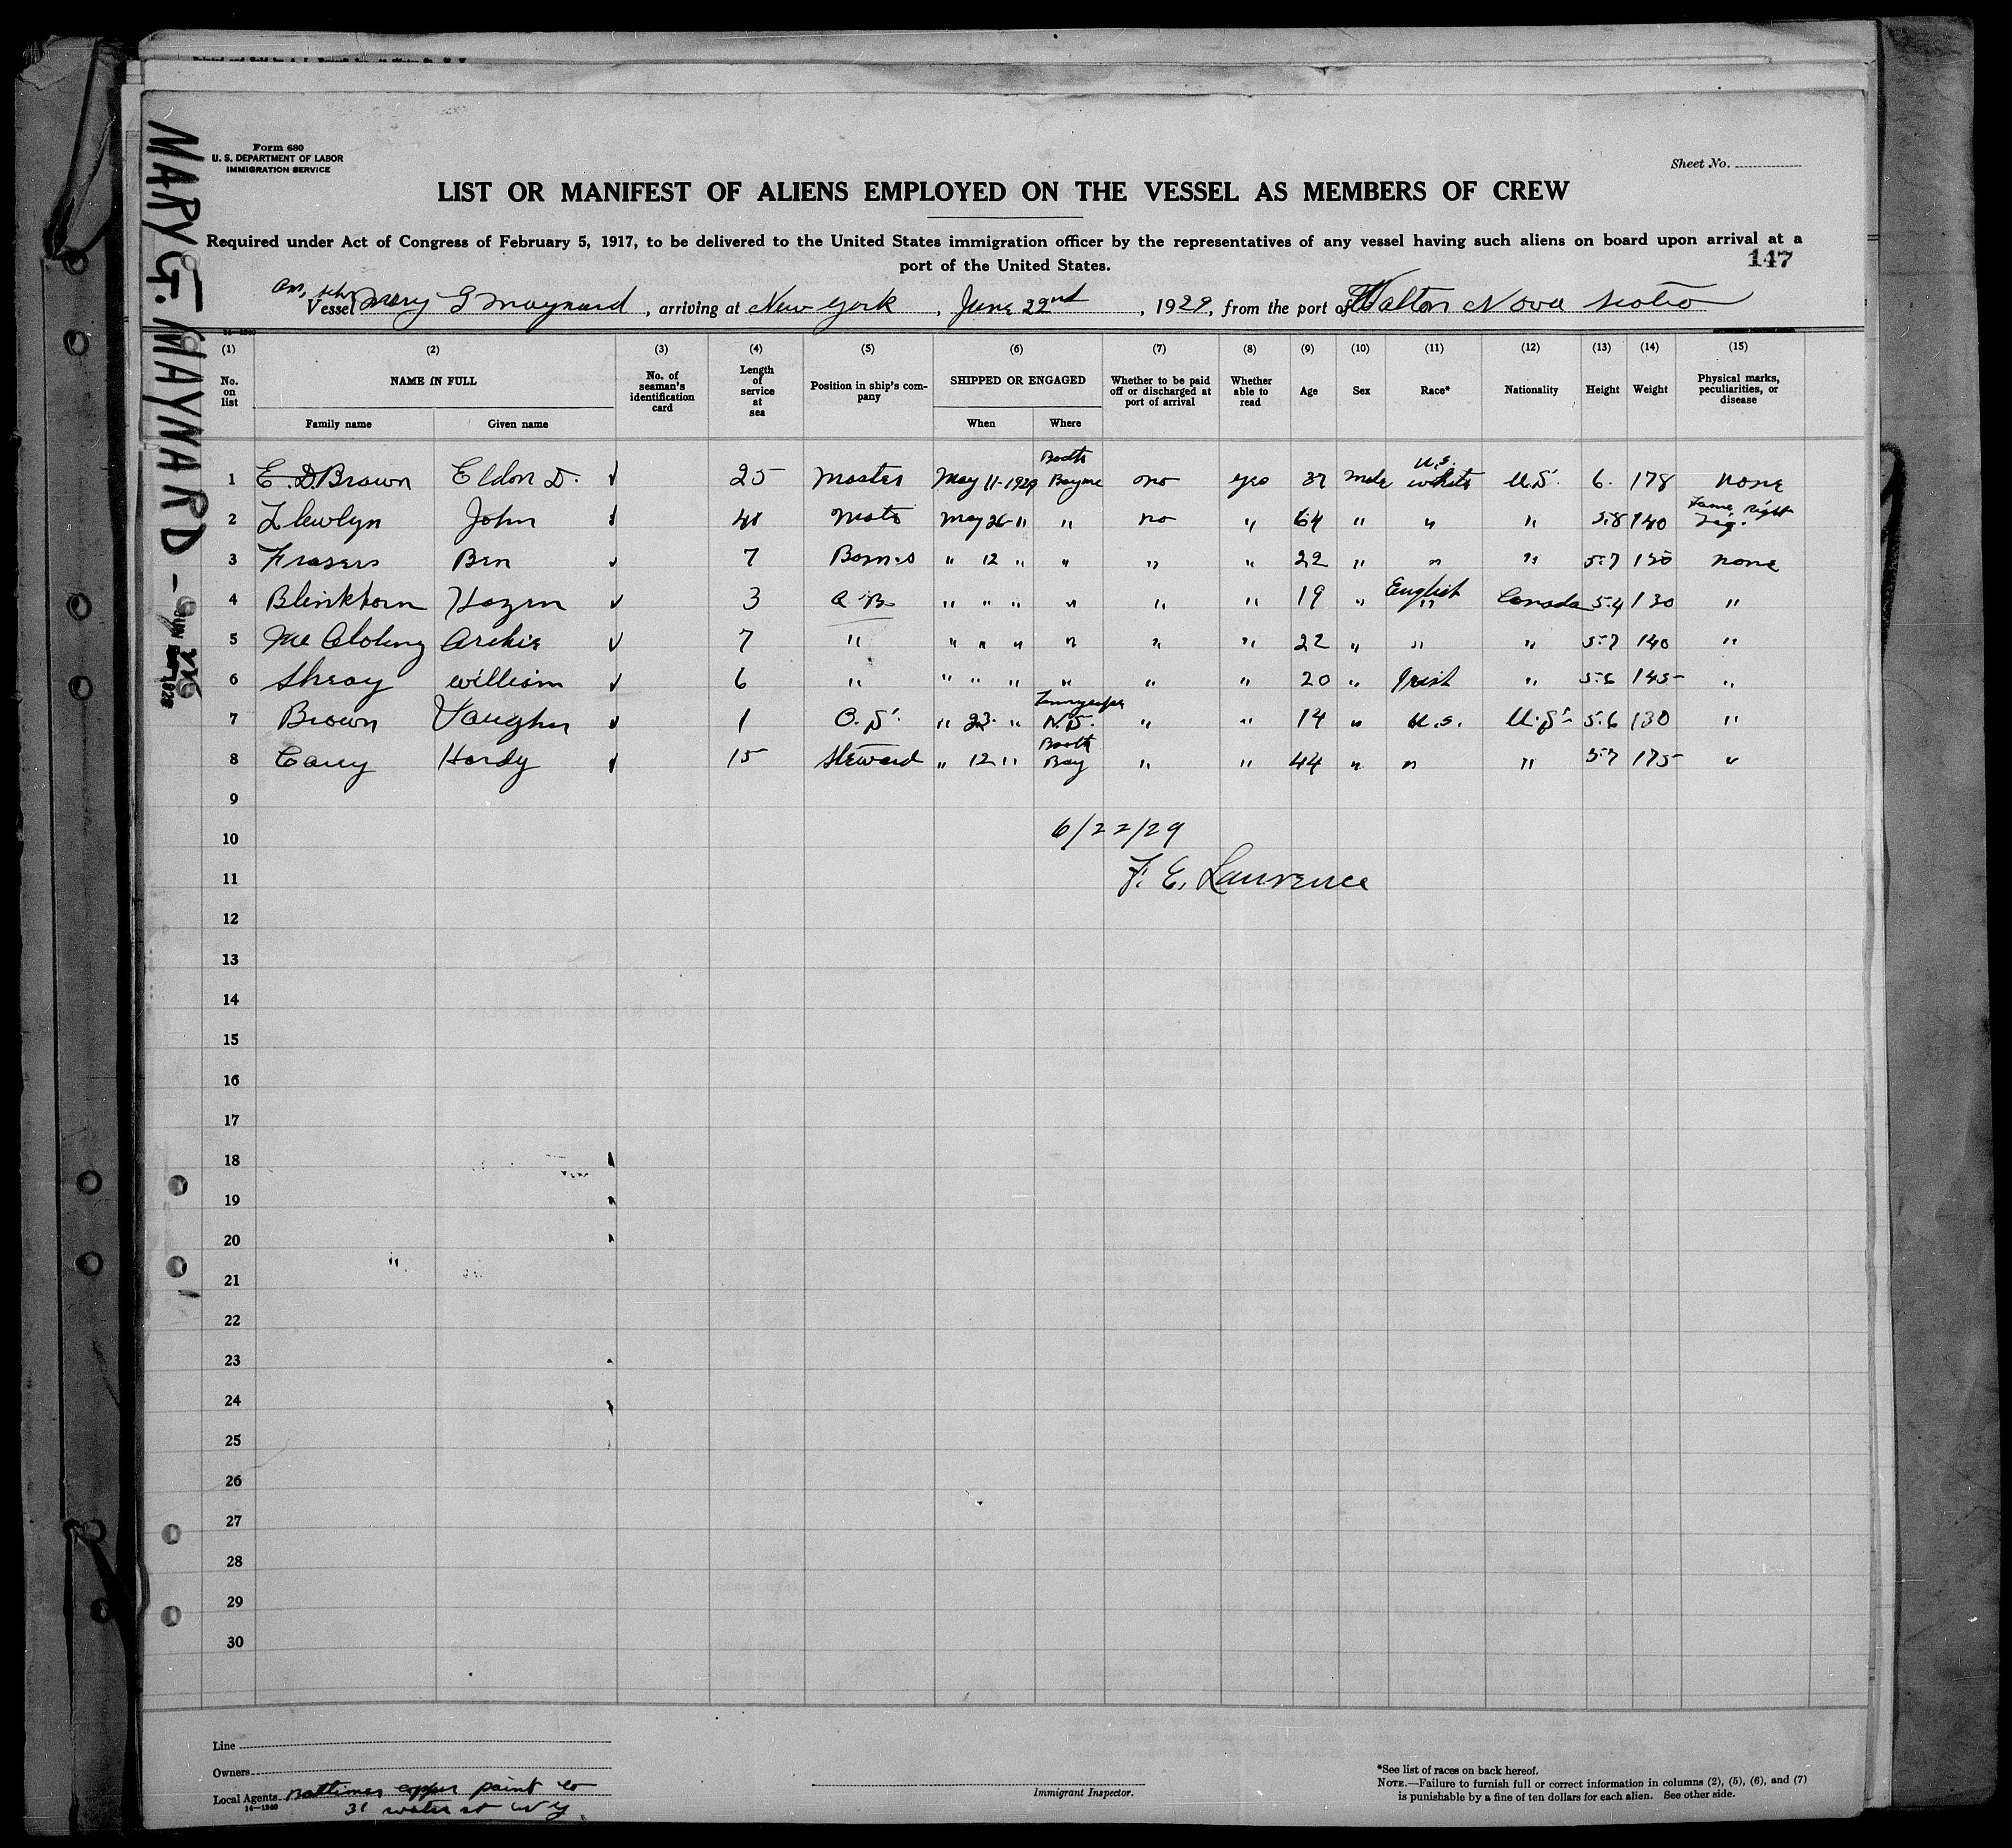 MARY G. MAYNARD -
Form 680
U. S. DEPARTMENT OF LABOR
IMMIGRATION SERVICE
Sheet No.
LIST OR MANIFEST OF ALIENS EMPLOYED ON THE VESSEL AS MEMBERS OF CREW
Required under Act of Congress of February 5, 1917, to be delivered to the United States immigration officer by the representatives of any vessel having such aliens on board upon arrival at a
port of the United States.
147
Am, schr
Vessel Mary G Maynard, arriving at New York, June 22nd, 1929, from the port of Walton Nova Scotia
(1) (2) (3) (4) (5) (6) (7) (8) (9) (10) (11) (12) (13) (14) (15)
No. on list NAME IN FULL No. of seaman's identification card Length of service at sea Position in ship's company SHIPPED OR ENGAGED Whether to be paid off or discharged at port of arrival Whether able to read Age Sex Race* Nationality Height Weight Physical marks, peculiarities, or disease
Family name Given name When Where
1 E. D Brown Eldon D. 25 Master May 11-1929 Booth Bay me no yes 37 male U.S. white U.S. 6. 178 none
2 Llewlyn John 41 Mate May 26 " " no " 64 " " " 5.8 140 Lame Right Leg.
3 Frasers Ben 7 " 12 " " " " 22 " " " 5-7 150 none
4 Blinkhorn Hazen 3 A B " " " " " " 19 " English " Canada 5-4 130 "
5 Archie 7 " " " " " " " 22 " " " 5-7 140 "
6 Shray William 6 " " " " " " " 20 " Irish " 5-6 145 "
7 Brown Vaughn 1 O. S. " 23 " N.S. " " 14 " U.S. U.S. 5-6 130 "
8 Cany Hardy 15 Steward " 12 " Booth Bay " " 44 " " " 5-7 175 "
9
10 6/22/29
11 F. E. Lawrence
12
13
14
15
16
17
18
19
20
21
22
23
24
25
26
27
28
29
30
Line
Owners
Local Agents Baltimer copper paint co
14—1940
31 water st N Y.
Immigrant Inspector.
*See list of races on back hereof.
NOTE.—Failure to furnish full or correct information in columns (2), (5), (6), and (7)
is punishable by a fine of ten dollars for each alien. See other side.